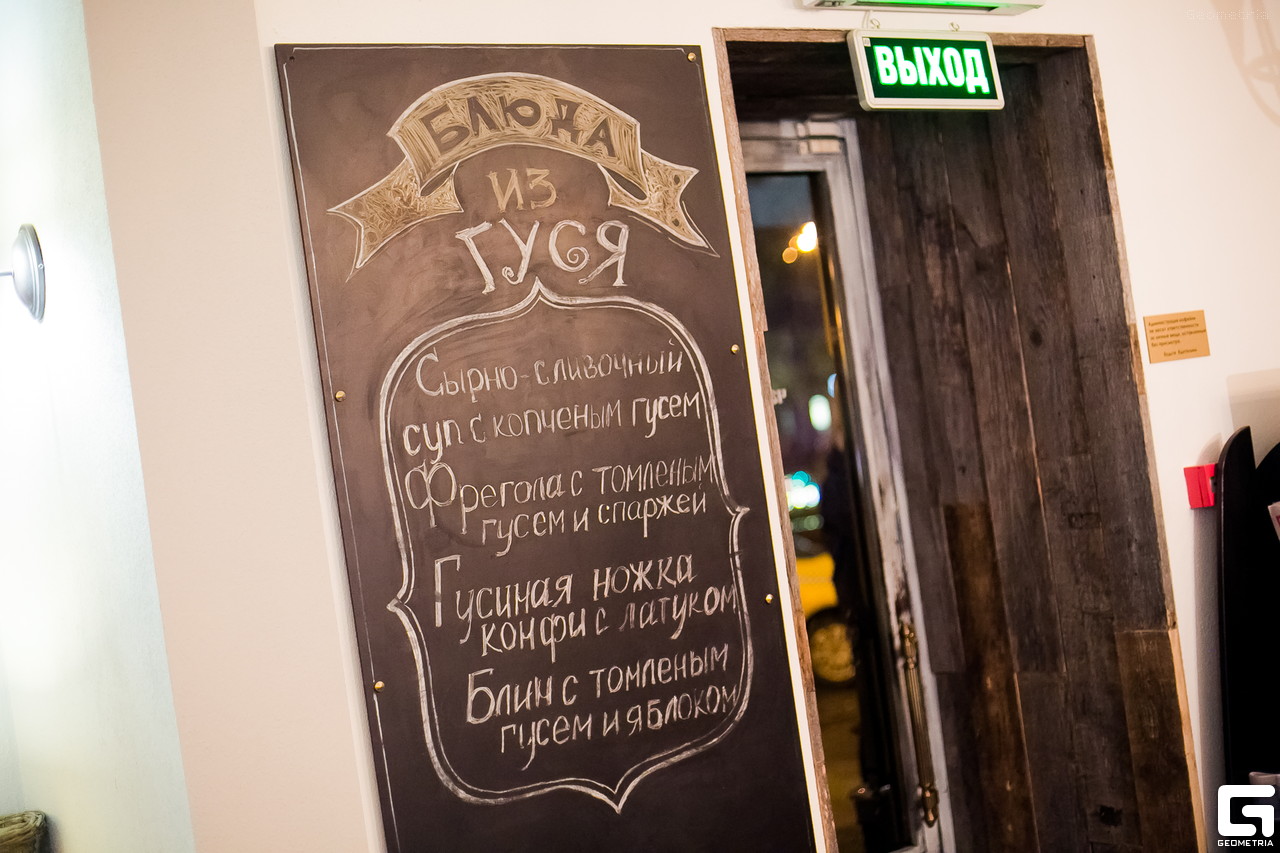 БЛЮДА
ИЗ
ГУСЯ
Сырно-сливочный
суп с копченым гусем
Фрегола с томленым
гусем и спаржей
Гусиная ножка
конфи с латуком
Блин с томленым
гусем и яблоком
ВЫХОД
Администрация
не несет ответственности
GEOMETRIA